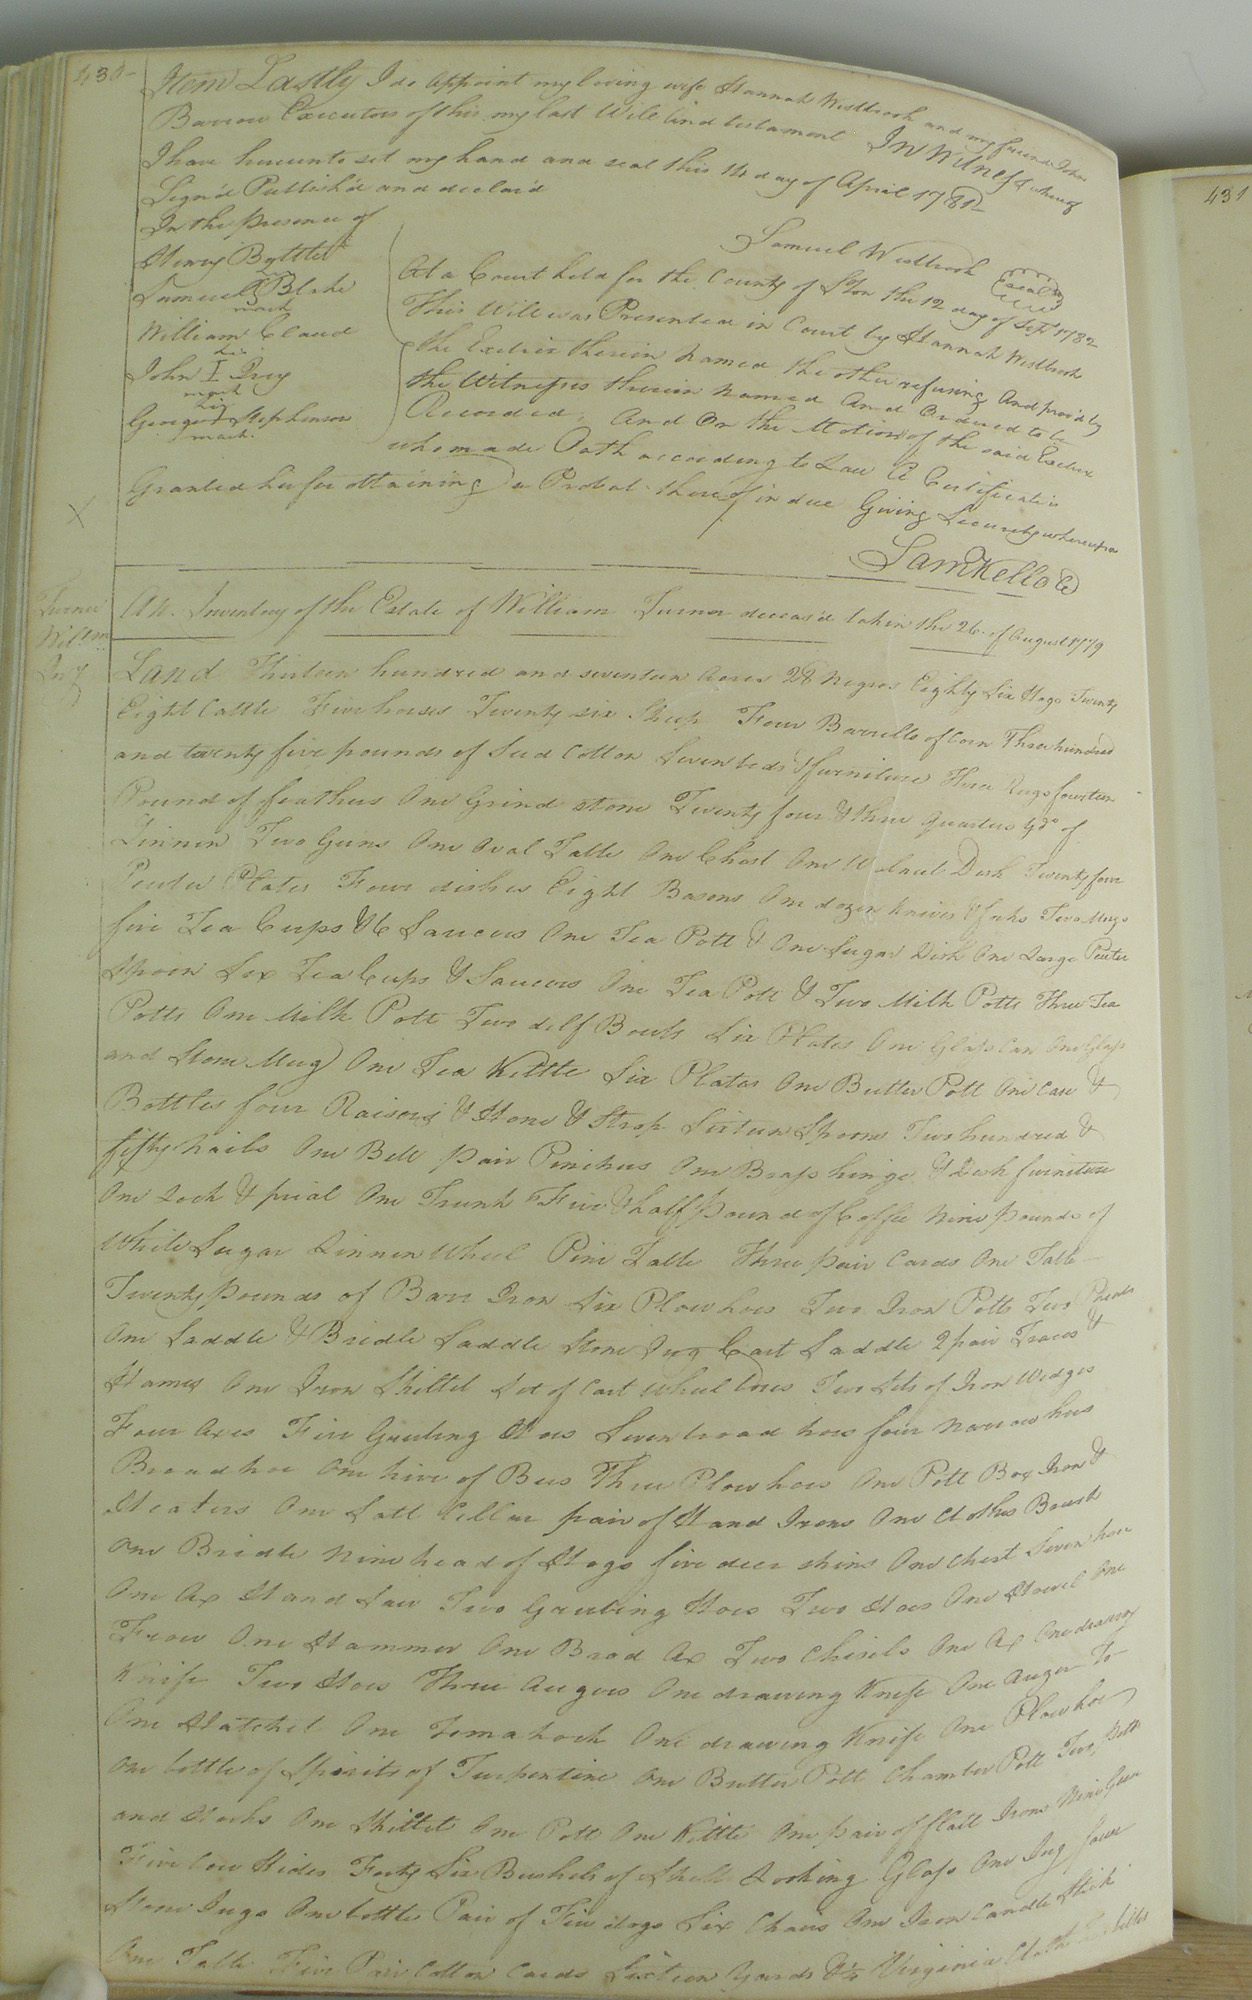 430
Item Lastly I do appoint my loving wife Hannah Westbrook and my friend John
Barrow Executors of this my last Will and testament In Witness whereof
I have hereunto set my hand and seal this 14 day of April 1781
Sign'd Publish'd and declar'd
In the presence of
Samuel Westbrook
Seal
Henry
Samuel Blake
mark
William Claud
his
John I
mark
his
George Stephenson
mark.
At a Court held for the County of Ston the 12 day of Sept 1782
This Will was Presented in Court by Hannah Westbrook
the Exetrix therein named the other refusing And prov'd by
the Witnesses therein named And Ordered to be
Recorded. And On the Motion of the said Exetrix
who made Oath according to Law A Certificate is
Granted her for obtaining a Probat thereof in due Giving Security whereupon
Sam Kello
Turner
Willm
Inv
An Inventory of the Estate of William Turner deceas'd taken the 26 of August 1779
Land Thirteen hundred and seventeen Acres 28 Negros Eighty Six Hogs Twenty
Eight Cattle Five horses Twenty six Sheep Four Barrells of Corn Three hundred
and twenty five pounds of Seed Cotton Seven beds & furniture Three Rugs fourteen
Pound of feathers One Grind stone Twenty four & three quarters Yds of
Linnen Two Guns One Oval Table One Chest One Walnut Desk Twenty four
Pewter Plates Four dishes Eight Basons One dozen Knives & forks Two Mugs
five Tea Cups & 6 Saucers One Tea Pott & One Sugar Dish One Large Pewter
Spoon Six Tea Cups & Saucers One Tea Pott & Two Milk Potts Three Tea
Potts One Milk Pott Two delf Bowls Six Plates One Glass Can One Glass
and Stone Mug One Tea Kettle Six Plates One Butter Pott One Case &
Bottles four Raisors & Hone & Strop Sixteen Spoons Two hundred &
fifty nails One Bell pair Pinchers One Brass hinge & Desk furniture
One Lock & Trunk Five & half pound of Coffee Nine pounds of
White Sugar Linnen Wheel Pine Table Three pair Cards One Table
Twenty pounds of Barr Iron Six Plow hoes Two Iron Potts Two
One Saddle & Bridle Saddle Stone Jug Cart Saddle 2 pair Traces &
Hames One Iron Skillet Set of Cart wheel Two Sets of Iron Wedges
Four Axes Five Grubing Hoes Seven broad hoes four narrow hoes
Broad hoe One hive of Bees Three Plow hoes One Pott Box Iron &
Heaters One Salt Cellar pair of Hand Irons One Clothes Brush
One Bridle Nine head of Hogs five deer skins One Chest Seven hoes
One Ax Hand Saw Two Grubing Hoes Two Hoes One One
Frow One Hammer One Brad Ax Two Chisels One Ax One drawing
Knife Two Hoes Three Augers One drawing Knife One Auger To
One Hatchet One Tomahock One drawing Knife One Plow hoe
One bottle of Spirits of Turpentine One Butter Pott Chamber Pott Two
and Hooks One Skillet One Pott One Kettle One pair of flatt Irons Nine Geese
Five Cow Hides Forty Six Bushels of Looking Glass One Jug four
Stone Jugs One bottle Pair of Fire dogs Six Chairs One Iron Candle Stick
One Table Five Pair Cotton Cards Sixteen Yards & ½ Virginia Cloth
431